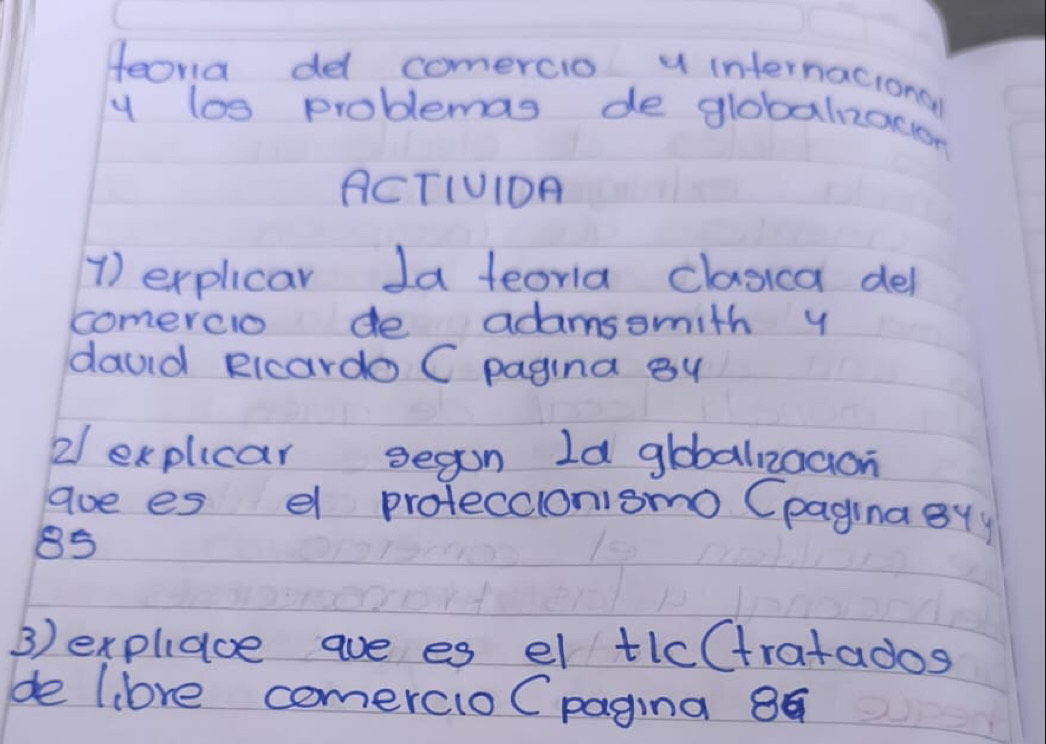 teoria del comercio y internacional
y los problemas de globalizacion
ACTIVIDA
1) explicar la teoria clasica del
comercio de adamssmith y
david Ricardo ( pagina 84
2) explicar segun la globalizacion
que es el proteccionismo (pagina 84 y
85
3) explique que es el tlc (tratados
de libre comercio ( pagina 86